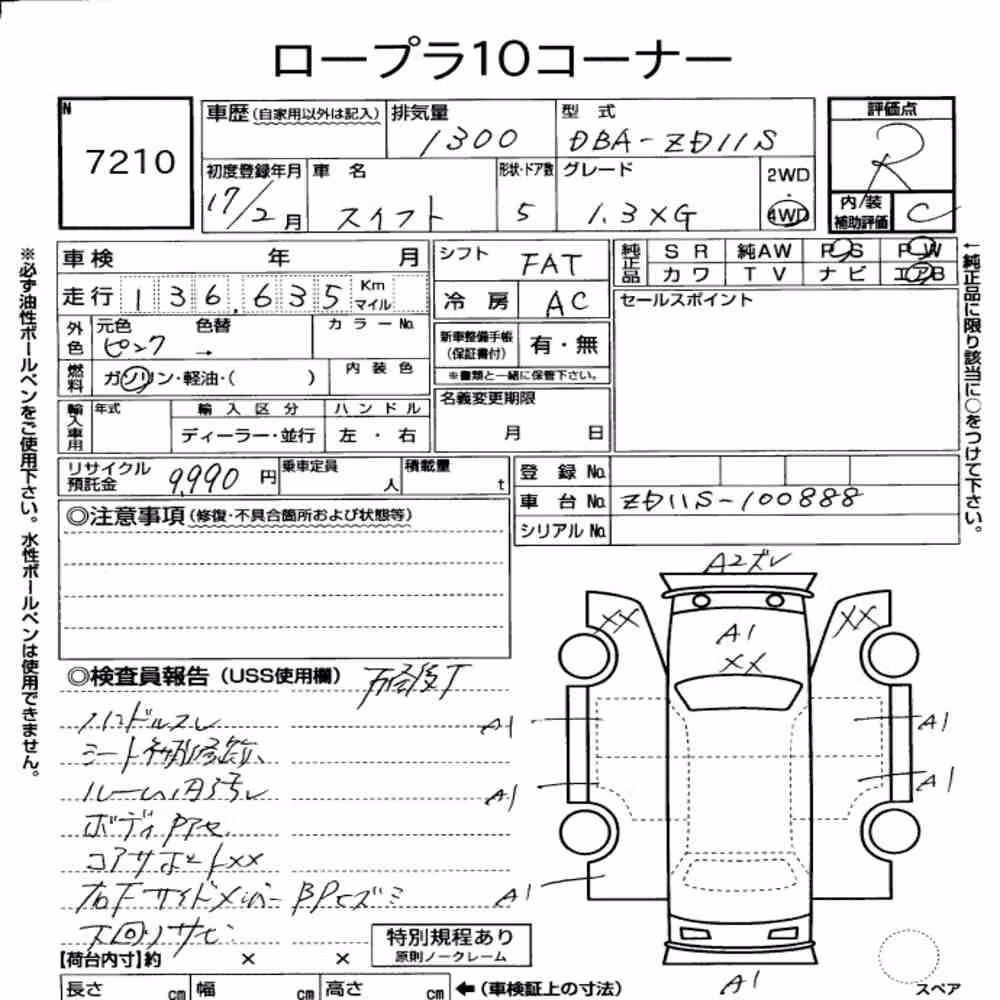 ロープラ10コーナー
N
7210
車歴(自家用以外は記入)
排気量
1300
型 式
DBA-ZD11S
評価点
R
初度登録年月
17/2月
車 名
スイフト
形状・ドア数
5
グレード
1.3XG
2WD
・
4WD
内/装
補助評価
C
車検 年 月
シフト
FAT
純正品
SR 純AW PS PW
カワ TV ナビ エアB
走行 136,635 Km マイル
冷房
AC
セールスポイント
外色
元色 色替
ピンク →
カラーNo.
新車整備手帳
(保証書付)
有・無
※書類と一緒に保管下さい。
燃料
ガソリン・軽油・( )
内装色
名義変更期限
月 日
輸入車用
年式
輸入区分
ディーラー・並行
ハンドル
左・右
リサイクル
預託金
9,990円
乗車定員
人
積載量
t
登録No.
車台No.
ZD11S-100888
シリアルNo.
◎注意事項(修復・不具合箇所および状態等)
※必ず油性ボールペンをご使用下さい。水性ボールペンは使用できません。
←純正品に限り該当に○をつけて下さい。
A2ズレ
XX
XX
A1
XX
A1
A1
A1
A1
A1
A1
◎検査員報告(USS使用欄)
ハンドルスレ
ルーム内汚レ
ボディPアセ
コアサポートXX
右Fサイドメンバー
下回リサビ
【荷台内寸】約 × ×
特別規程あり
原則ノークレーム
長さ cm 幅 cm 高さ cm
←(車検証上の寸法)
スペア